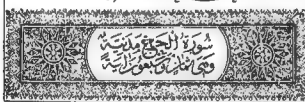 سورة الحج مدنية
وهي ثمان وسبعون اية